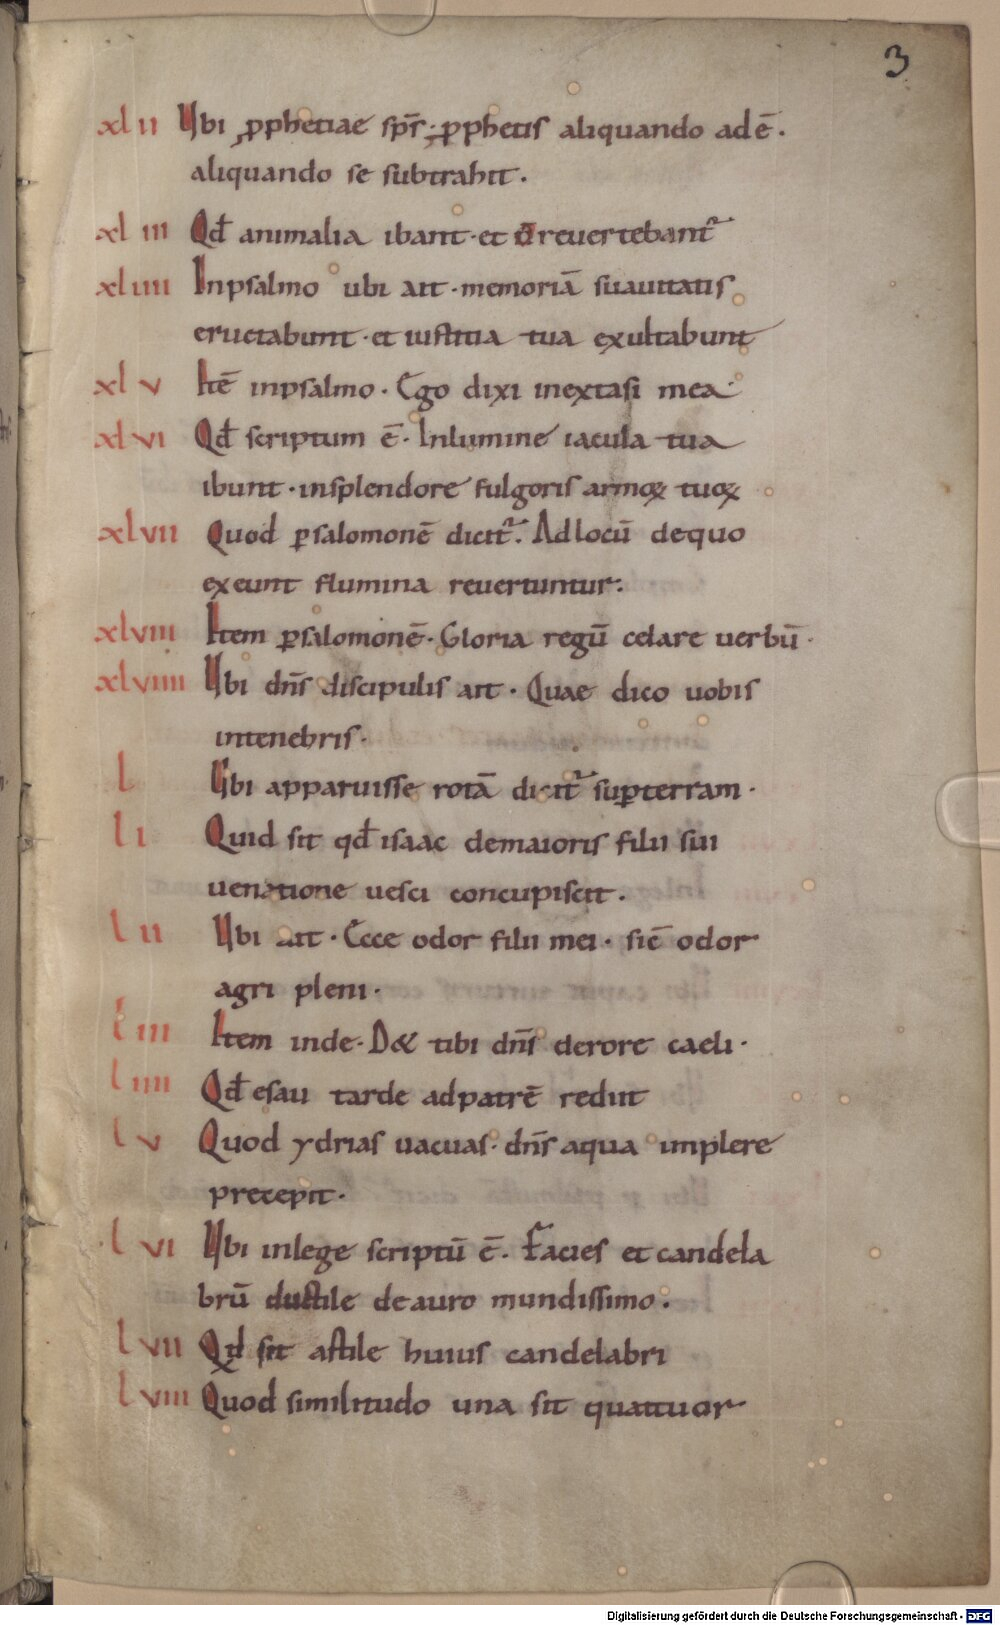 3
xlii Ubi ꝓphetiae sp̄s ꝓphetis aliquando adē.
aliquando se subtrahit.
xliii Qđ animalia ibant · et reuertebant᷑
xliiii Inpsalmo ubi ait · memoriā suauitatis
eructabunt · et iustitia tua exultabunt
xlv Itē inpsalmo · Ego dixi inextasi mea ·
xlvi Qđ scriptum ē · Inlumine iacula tua
ibunt · insplendore fulgoris armoꝝ tuoꝝ
xlvii Quod ꝑsalomonē dicit᷑. Adlocū dequo
exeunt flumina reuertuntur.
xlviii Item ꝑsalomonē · Gloria regū celare uerbū ·
xlviiii Ubi dn̄s discipulis ait · Quae dico uobis
intenebris ·
l Ubi apparuisse rotā dicit᷑ suꝑterram ·
li Quid sit qđ isaac demaioris filii sui
uenatione uesci concupiscit ·
lii Ubi ait · Ecce odor filii mei · sic̄ odor
agri pleni ·
liii Item inde · D& tibi dn̄s derore caeli ·
liiii Qđ esau tarde adpatrē rediit
lv Quod ydrias uacuas · dn̄s aqua implere
precepit ·
lvi Ubi inlege scriptū ē · Facies et candela
brū ductile deauro mundissimo ·
lvii Qđ sit astile huius candelabri
lviii Quod similitudo una sit quattuor
Digitalisierung gefördert durch die Deutsche Forschungsgemeinschaft - DFG